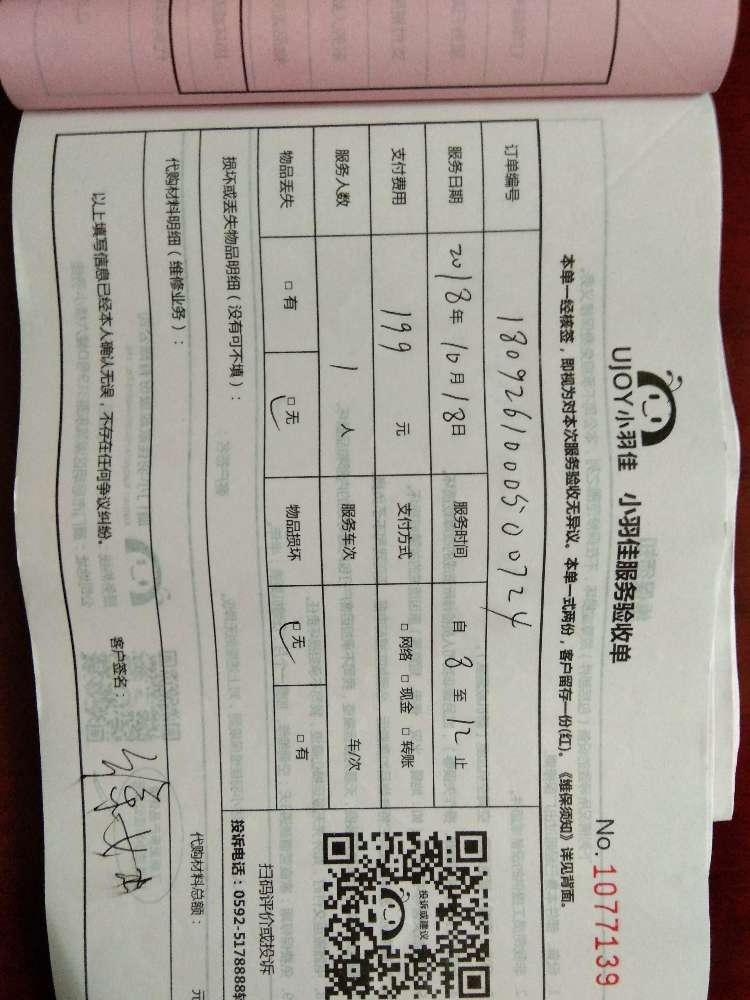 UJOY小羽佳 小羽佳服务验收单
No. 1077139
本单一经核签，即视为对本次服务验收无异议。本单一式两份，客户留存一份(红)。《维保须知》详见背面。
订单编号 1809261000500724
服务日期 2018年10月18日 服务时间 自 8 至 12 止
支付费用 199 元 支付方式 □ 网络 □ 现金 □ 转账
服务人数 1 人 服务车次 车/次
物品丢失 □ 有 □ 无 物品损坏 □ 无 □ 有
损坏或丢失物品明细（没有可不填）：
代购材料明细（维修业务）：
代购材料总额： 元
以上填写信息已经本人确认无误，不存在任何争议纠纷。 客户签名：
投诉或建议
扫码评价或投诉
投诉电话：0592-5178888转